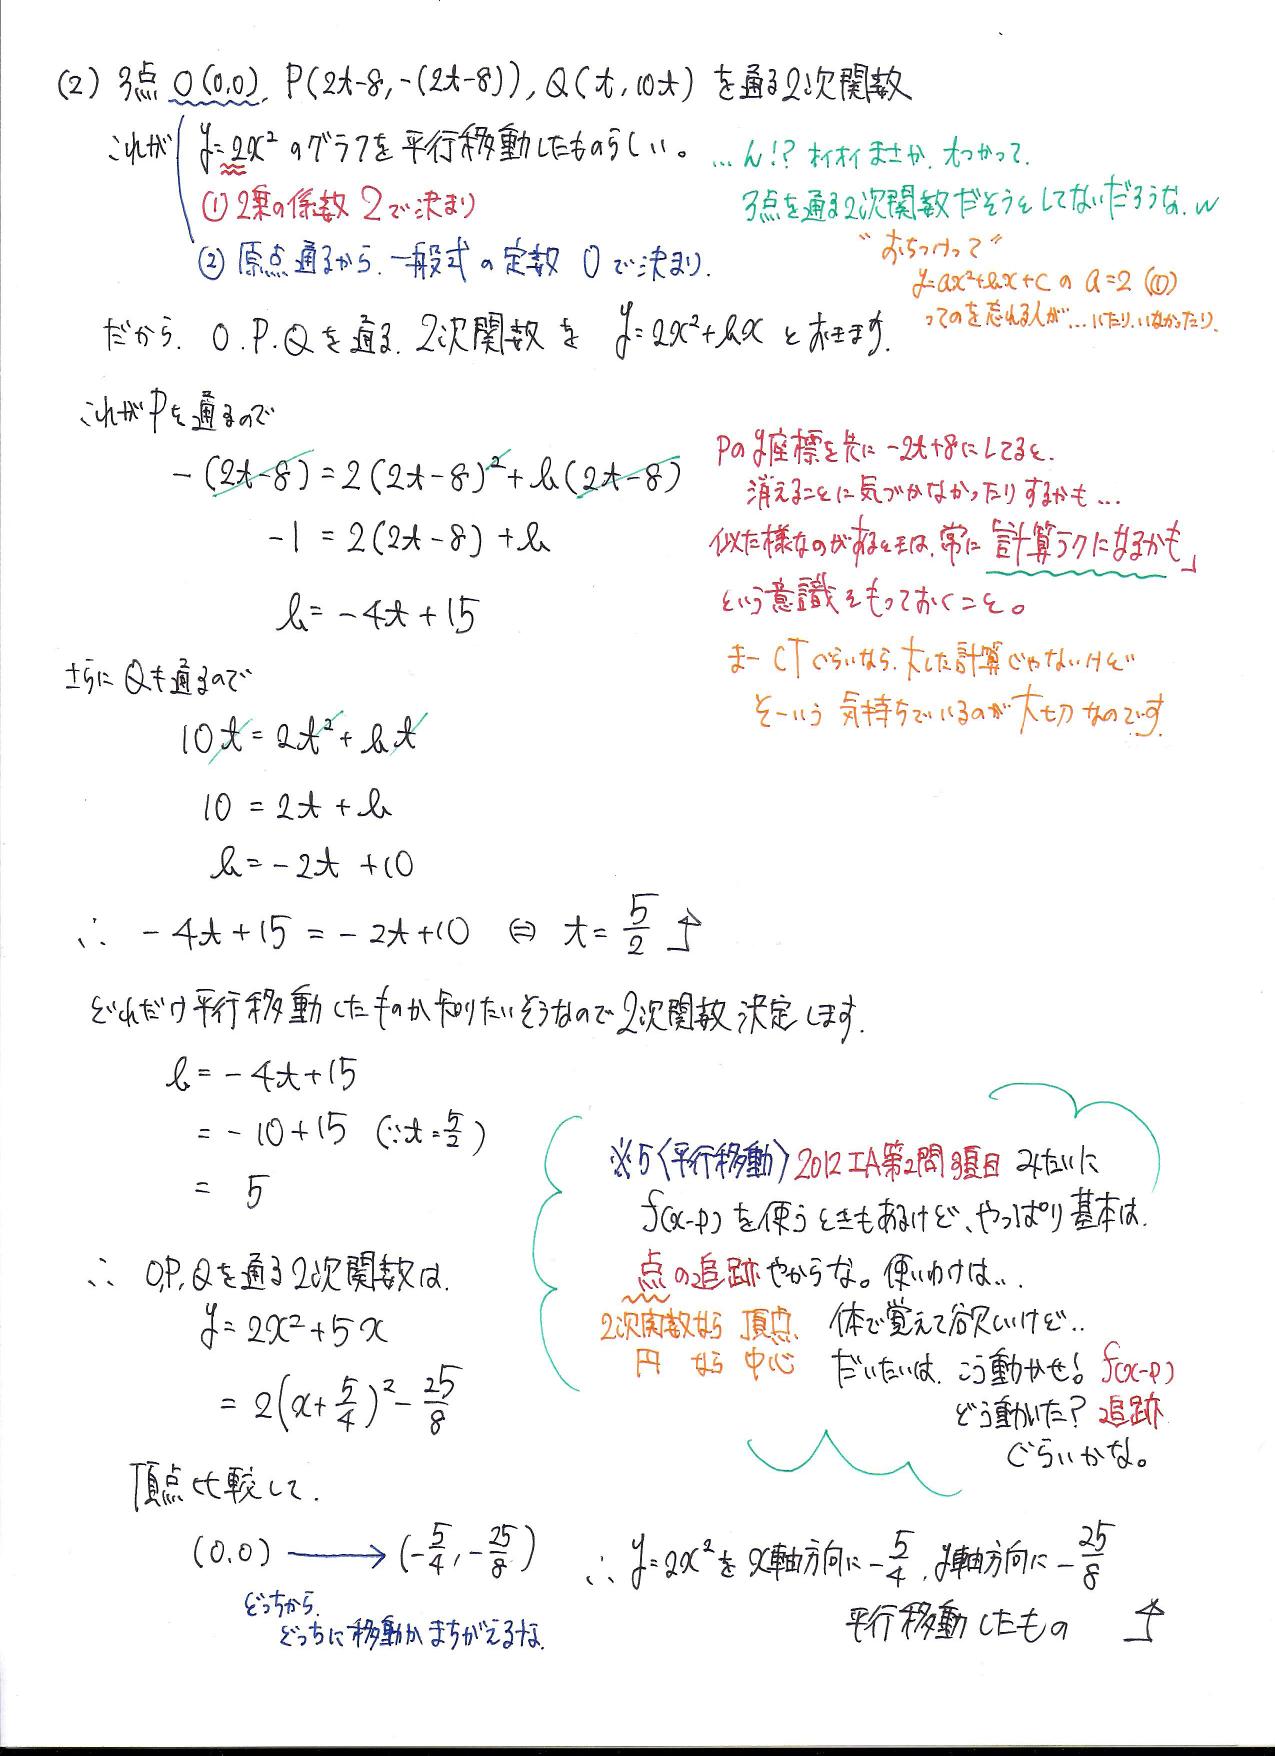 (2) 3点 O(0,0), P(2t-8, -(2t-8)), Q(t, 10t) を通る2次関数
これが y=2x² のグラフを平行移動したものらしい。
…ん!? オイオイ まさか、
3点を通る2次関数だそうとしてないだろうな。w
① 2乗の係数 2で決まり
② 原点通るから、一般式の定数 0で決まり.
"おちつけって"
y=ax²+bx+c の a=2 (①)
ってのを忘れる人が…いたり、いなかったり.
だから、O.P.Qを通る、2次関数を y=2x²+bx とおきます.
これがPを通るので
-(2t-8) = 2(2t-8)²+b(2t-8)
-1 = 2(2t-8)+b
b = -4t+15
Pのy座標を先に -2t+8にしてると、
消えることに気づかなかったりするかも…
似た様なのがあるときは、常に「計算ラクになるかも」
という意識をもっておくこと。
まー CTぐらいなら、大した計算じゃないけど
そーいう 気持ちでいるのが 大切なのです.
さらに Qも通るので
10t = 2t²+bt
10 = 2t+b
b = -2t+10
∴ -4t+15 = -2t+10 ⇔ t = 5/2
どれだけ平行移動したものか知りたいそうなので2次関数決定します.
b = -4t+15
= -10+15 (∵t=5/2)
= 5
∴ O,P,Qを通る2次関数は、
y = 2x²+5x
= 2(x+5/4)²-25/8
※5〈平行移動〉2012 IA第2問3項目 みたいに
f(x-p) を使うときもあるけど、やっぱり基本は、
点の追跡やからな。使いわけは…
2次関数なら 頂点、
円 なら 中心
体で覚えて欲しいけど..
だいたいは、こう動かせ! f(x-p)
どう動いた? 追跡
ぐらいかな。
頂点比較して、
(0,0) → (-5/4, -25/8)
どっちから、
どっちに移動かまちがえるな.
∴ y=2x² を x軸方向に -5/4, y軸方向に -25/8
平行移動したもの